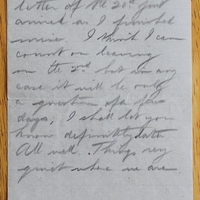 letter of the 20th just
arrived as I finished
mine. I think I can
count on leaving
on the 2nd but in any
case it will be only
a question of a few
days, I shall let you
know definitely later
All well. Things very
quiet where we are